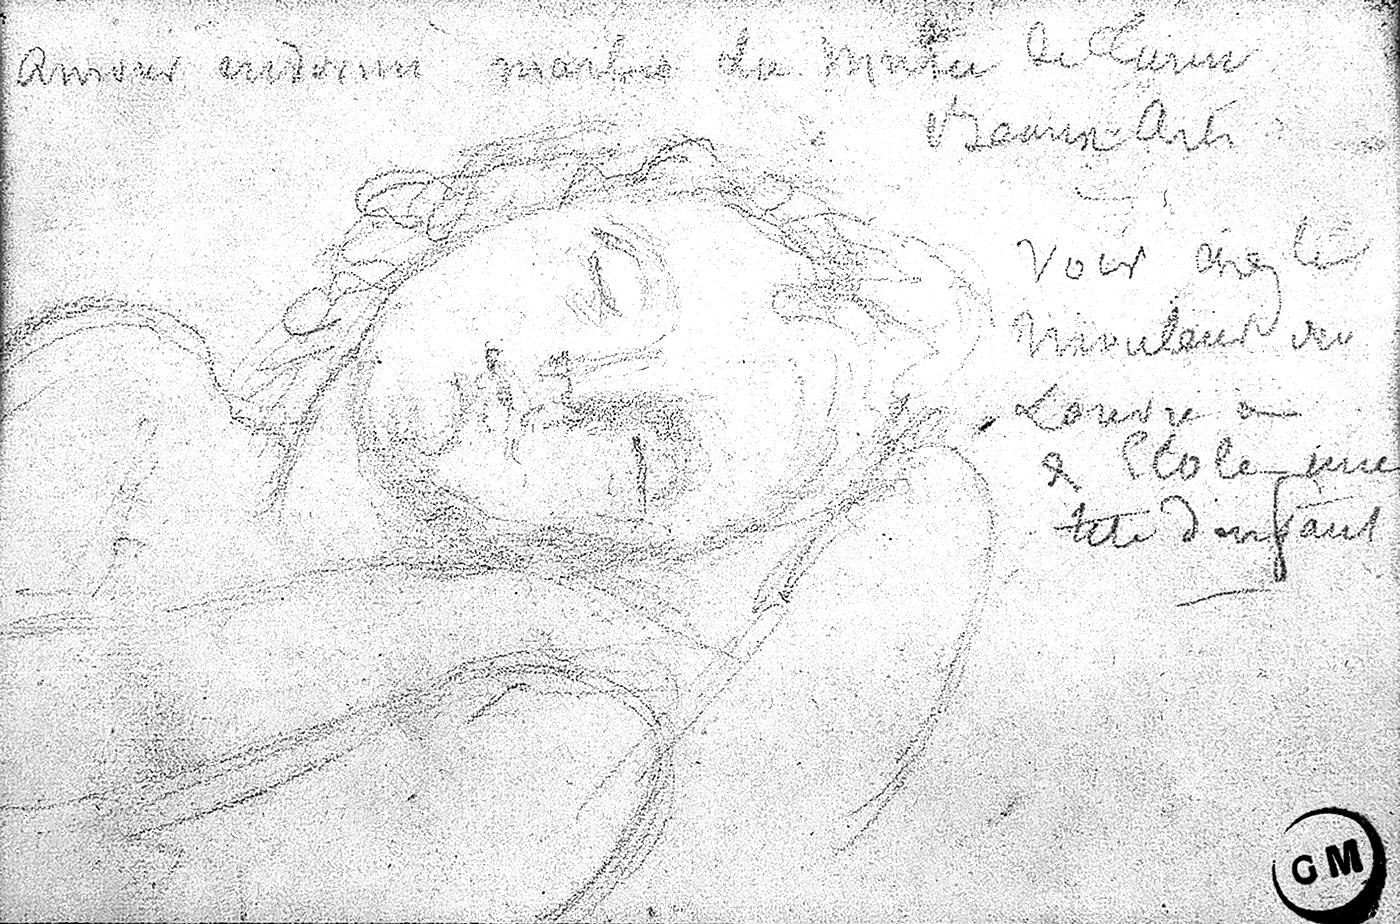 Amour endormi marbre du Musée de Turin
Beaux-Arts
Voir chez le
mouleur du
Louvre
à l'École une
tête d'enfant
GM